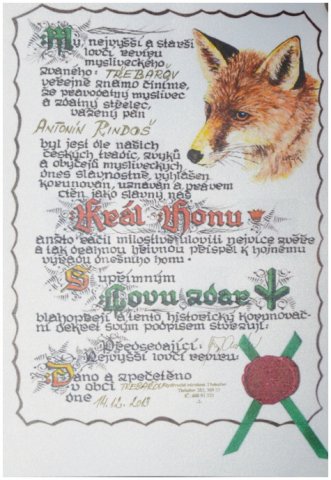 My, nejvyšší a starší
lovčí revíru
mysliveckého
zvaného: TŘEBAŘOV
veřejně známo činíme,
že pravodatný myslivec
a zdatný střelec,
vážený pán
ANTONÍN RINDOŠ
byl jest dle našich
českých tradic, zvyků
a obyčejů mysliveckých
dnes slavnostně vyhlášen
korunován, uznáván a právem
ctěn jako slavný náš
Král Honu
anžto ráčil milostivě uloviti nejvíce zvěře
a tak ohromnou měrou přispěl k hojnému
výřadu dnešního honu.
S upřímným
Lovu zdar
blahopřejí a tento historický korunovač-
ní dekret svým podpisem stvrzují:
Předsedající:
Nejvyšší lovčí revíru:
Dáno a zpečetěno
v obci TŘEBAŘOV
dne 14.12.2013